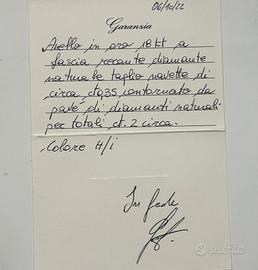 06/10/22
Garanzia
Anello in oro 18 kt a
fascia recante diamante
naturale taglio navette di
circa, ct 0,35 contornato da
pavé di diamanti naturali
per totali ct. 2 circa.
Colore H/i
In fede
subito